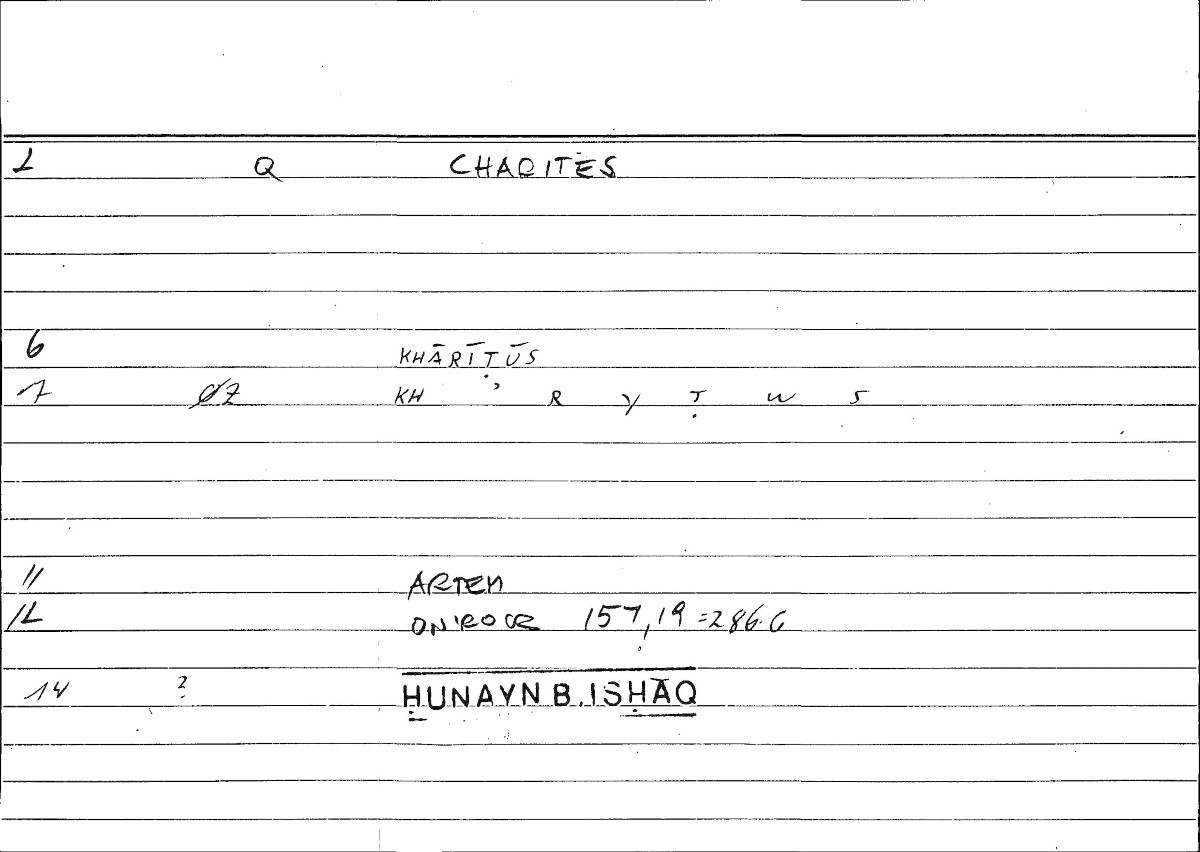 1 Q CHARITĖS
6 KHĀRĪṬŪS
7 ØZ KH ʾ R Y Ṭ W S
11 ARTEM
12 ONIROCR 157,19 =286.6
14 ? ḤUNAYN B. ISḤĀQ